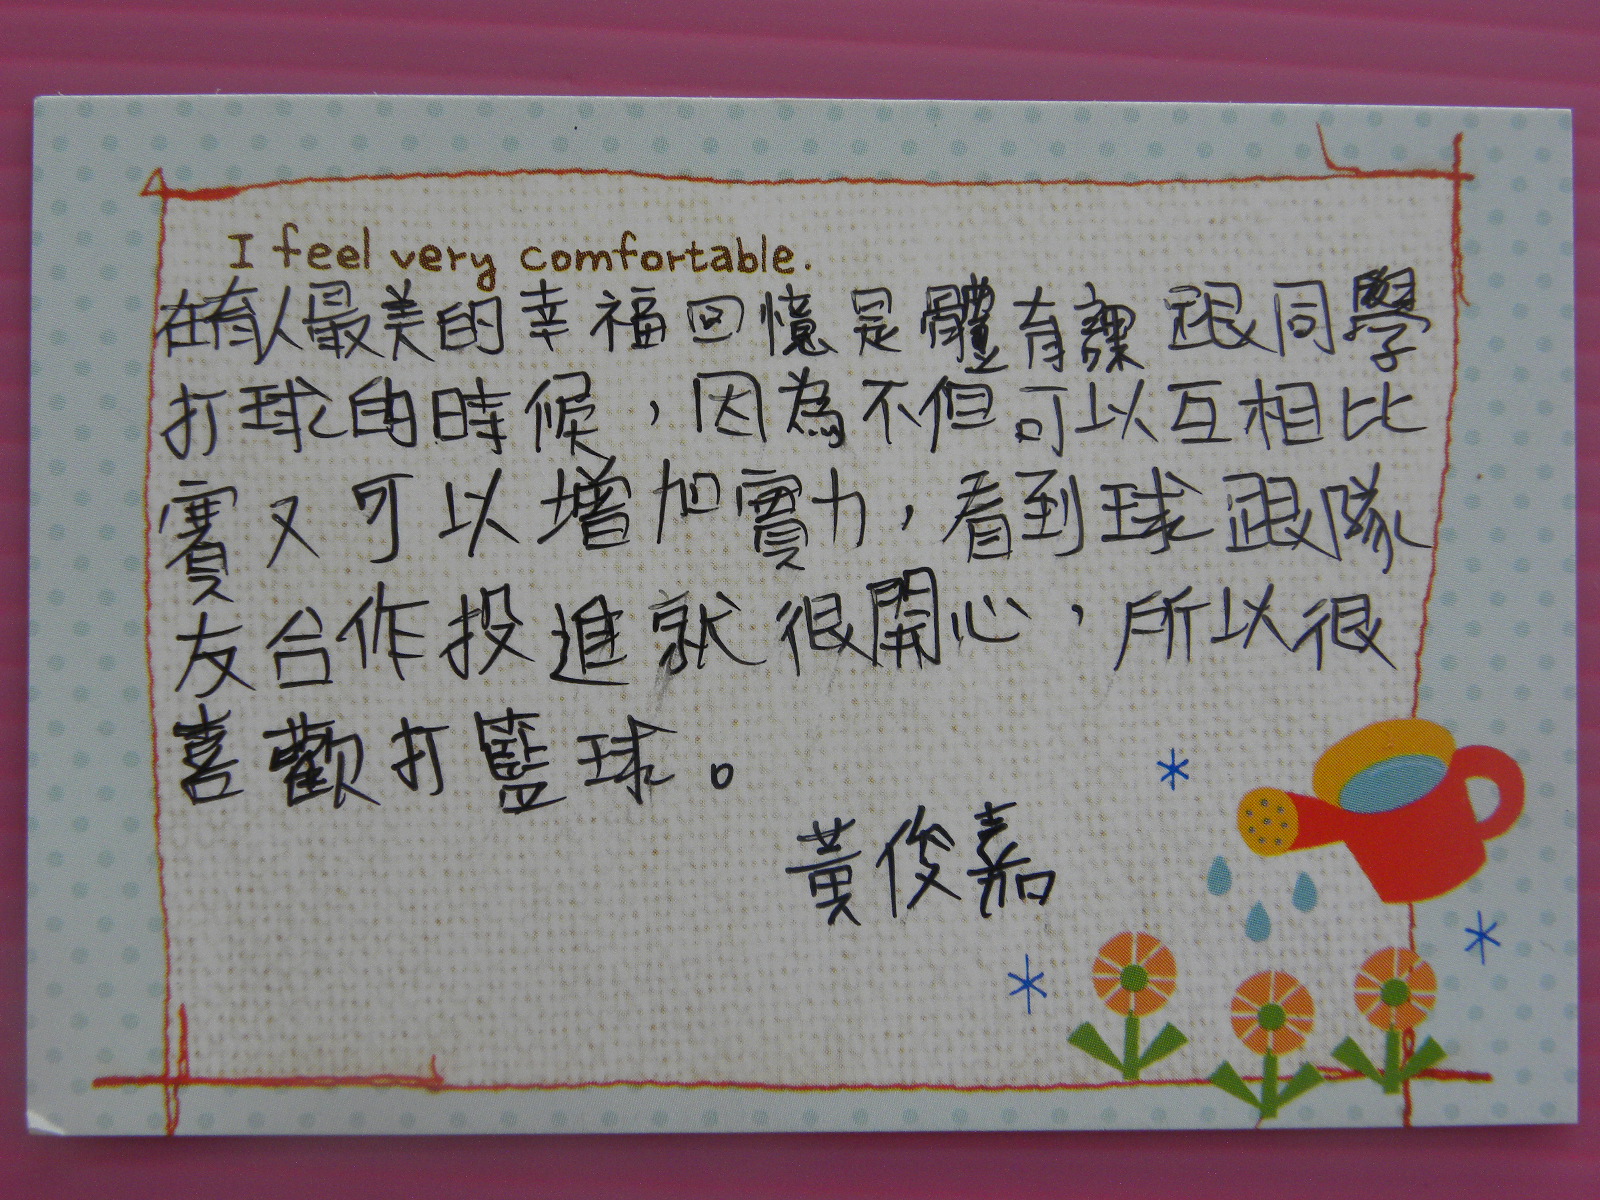 I feel very comfortable.
在有人最美的幸福回憶是體育課跟同學
打球的時候，因為不但可以互相比
賽又可以增加實力，看到球跟隊
友合作投進就很開心，所以很
喜歡打籃球。
黃俊嘉